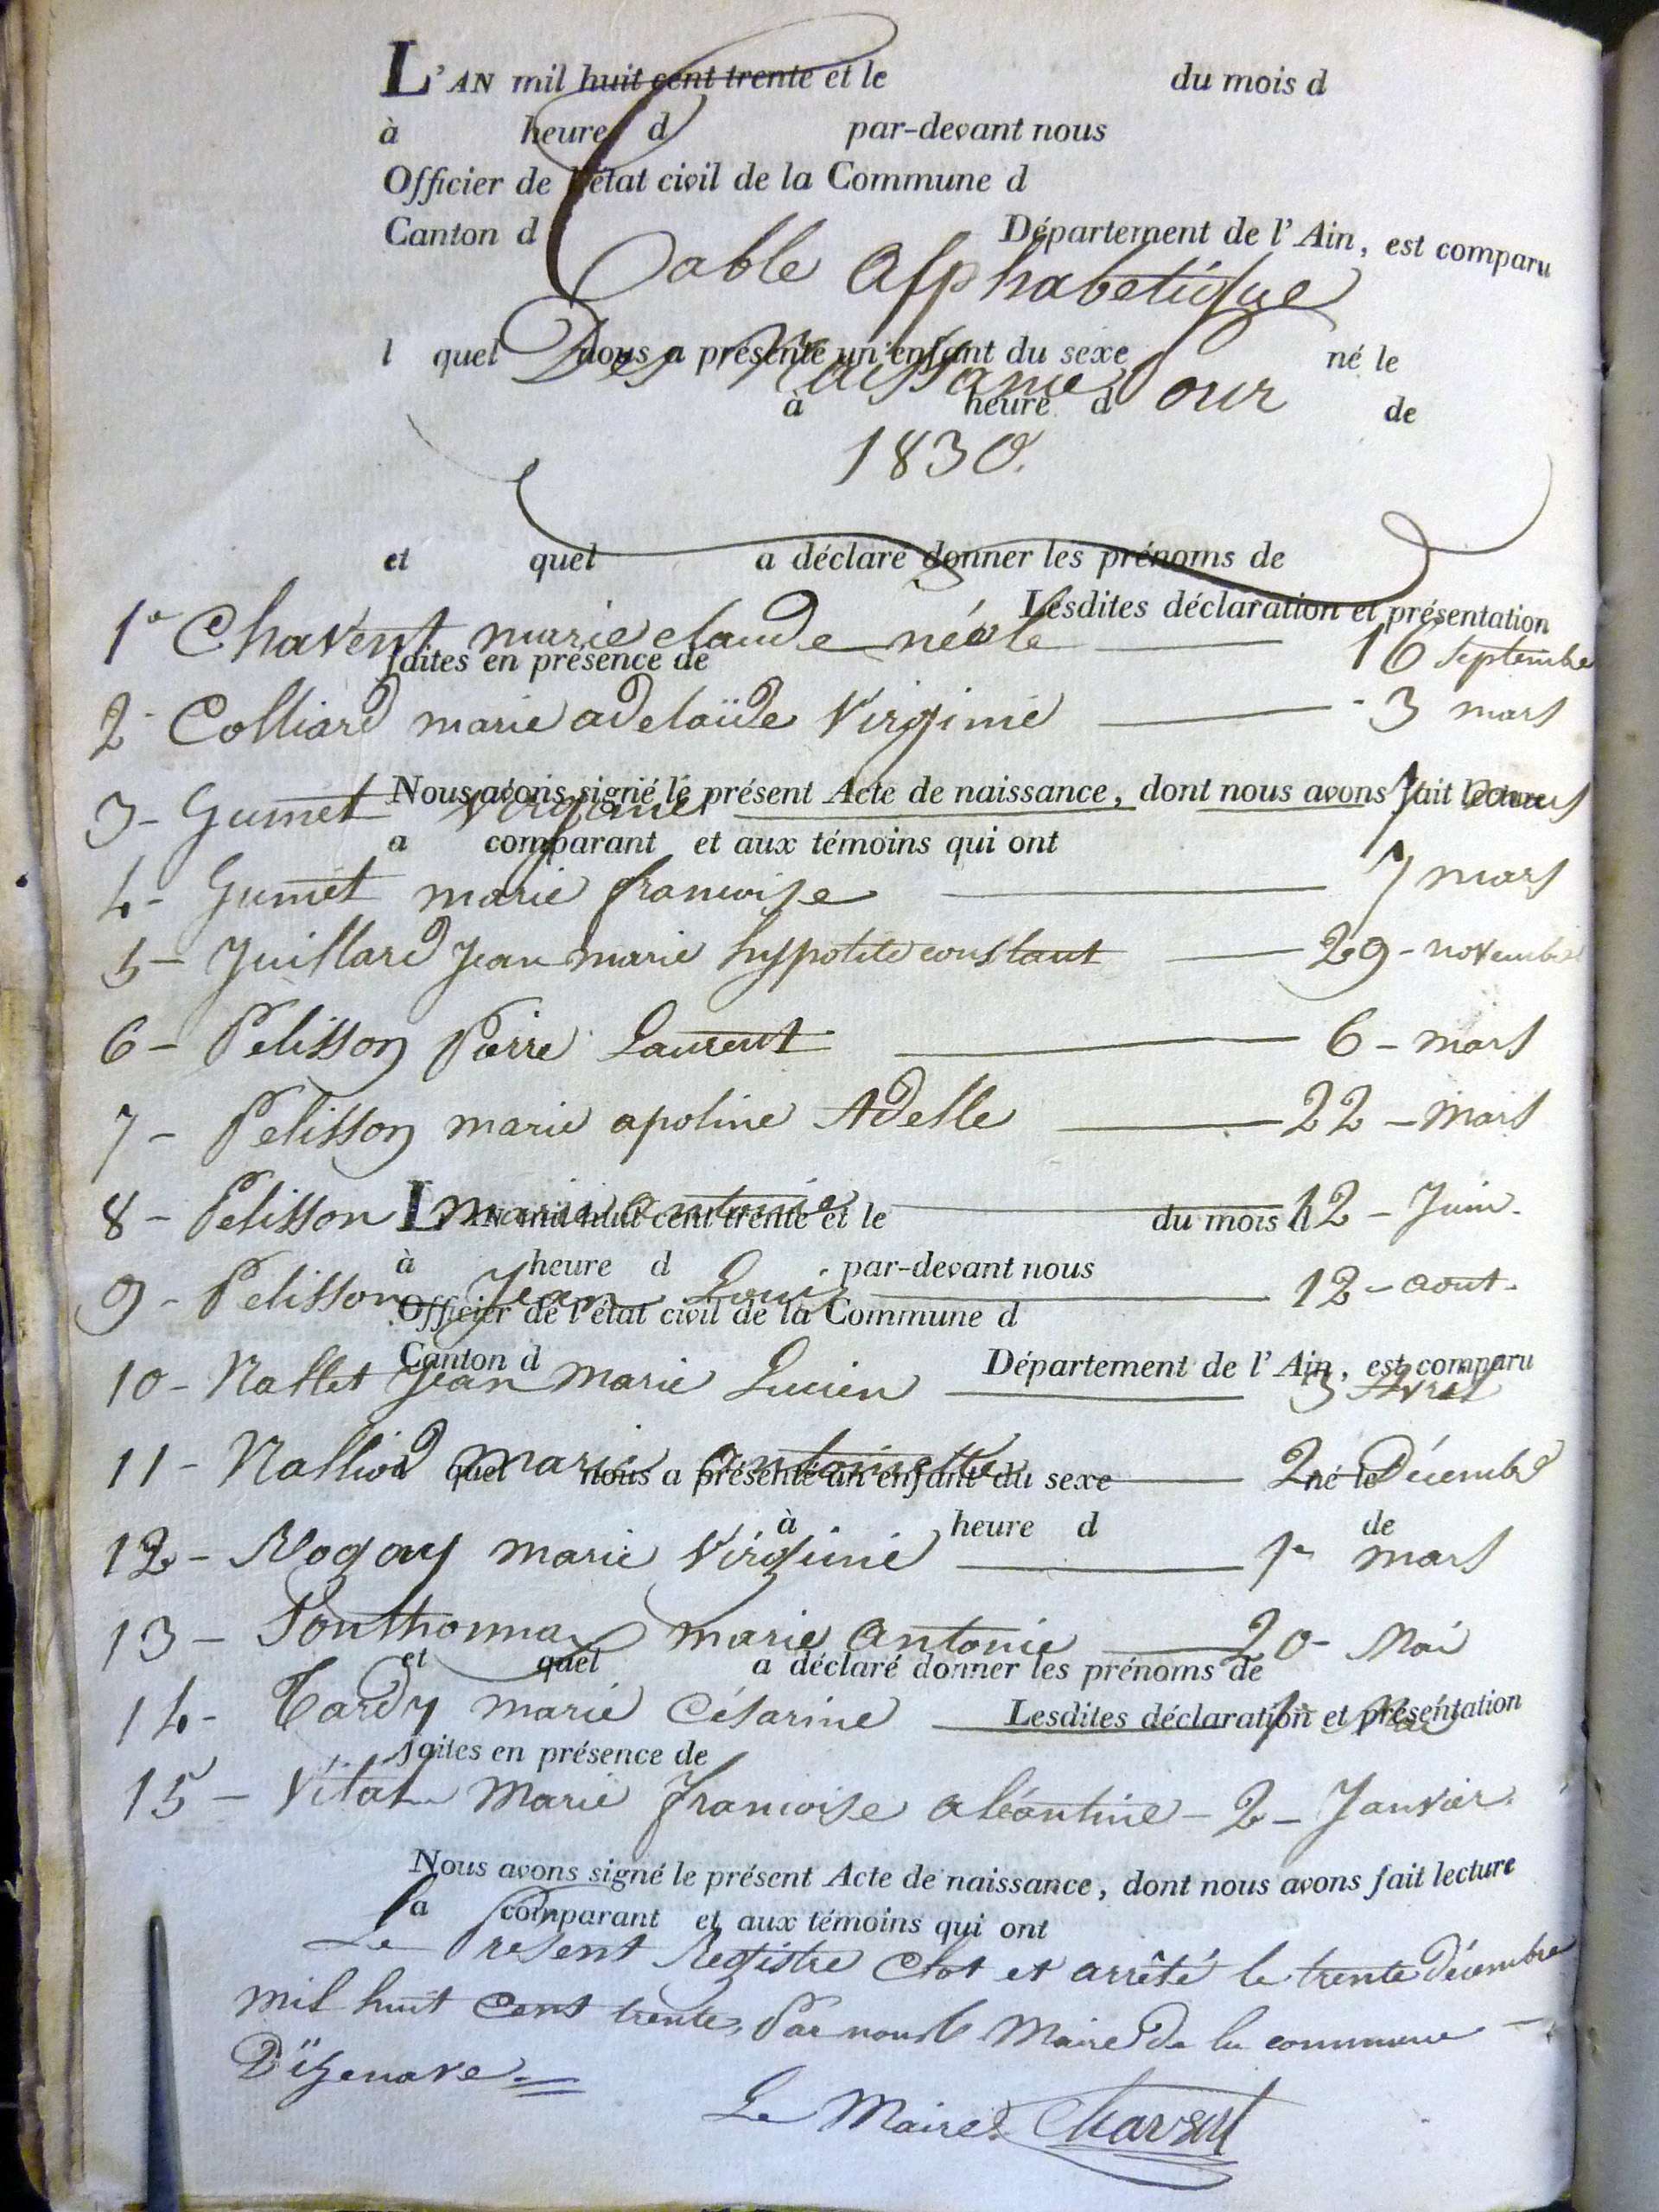 L'AN mil huit cent trente et le du mois d
à heure d par-devant nous
Officier de l'état civil de la Commune d
Canton d Département de l'Ain, est comparu
Table Alphabetique
l quel nous a présenté un enfant du sexe né le
Des Naissances Pour
à heure d de
1830.
et quel a déclaré donner les prénoms de
Lesdites déclaration et présentation
1° Chavent marie claude 16 Septembre
faites en présence de
2- Colliard marie adelaïde Virginie - 3 mars
Nous avons signé le présent Acte de naissance, dont nous avons fait lecture
3- Gumet Virginie 7 mars
a comparant et aux témoins qui ont
4- Gumet marie francoise 7 mars
5- Juillard Jean marie hypolite constant 29 - novembre
6- Pelisson Pierre Laurent 6 - mars
7- Pelisson marie apoline Adelle 22 - mars
8- Pelisson marie antonie 12 - Juin.
L'AN mil huit cent trente et le du mois d
à heure d par-devant nous
9- Pelisson Jean Louis 12 - aout.
Officier de l'état civil de la Commune d
Canton d Département de l'Ain, est comparu
10- Nallet Jean marie Lucien 3 Avril
11- Nalliod marie antoinette 2 - Décembre
l quel nous a présenté un enfant du sexe né le
à heure d de
12- marie Virginie 1er mars
13- Ponthonnax marie antonie 20 - Mai
et quel a déclaré donner les prénoms de
14- Tardy marie Césarine
Lesdites déclaration et présentation
faites en présence de
15- Vital Marie francoise aléontine - 2 - Janvier.
Nous avons signé le présent Acte de naissance, dont nous avons fait lecture
a comparant et aux témoins qui ont
Le Present Registre Clot et arrêté le trente décembre
mil huit Cent trente, Par nous Maire de la commune
D'izenave.
Le Maire Chavent